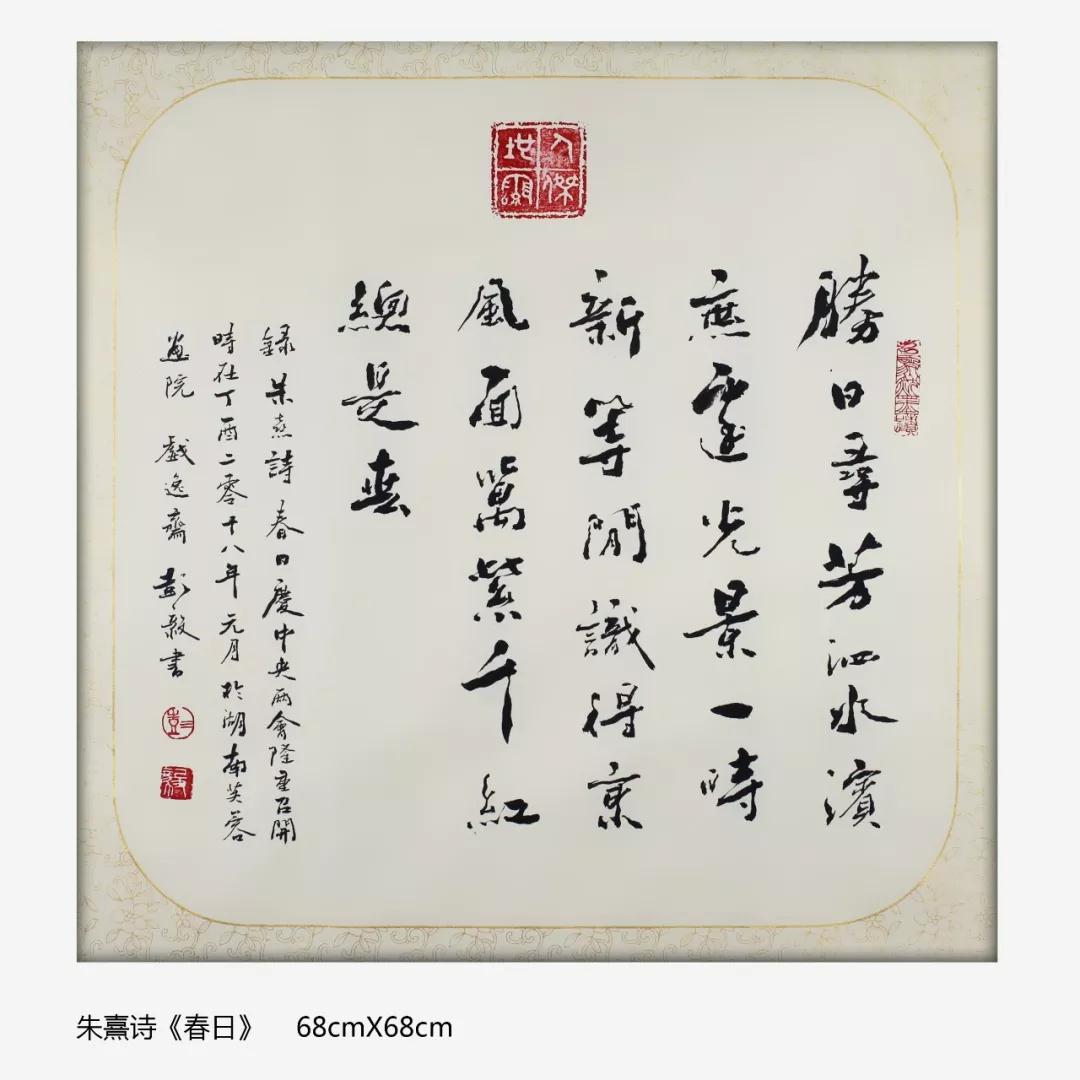 人傑地靈
勝日尋芳泗水濱
無邊光景一時
新等閒識得東
風面萬紫千紅
總是春
錄朱熹詩春日慶中央兩會隆重召開
時在丁酉二零十八年元月於湖南芙蓉
畫院 戲逸齋 彭毅书
彭
毅
朱熹诗《春日》 68cmX68cm